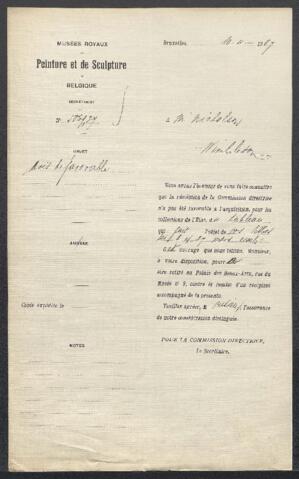 MUSÉES ROYAUX
DE
Peinture et de Sculpture
DE
BELGIQUE
SECRÉTARIAT
N°
OBJET
Avis défavorable
ANNEXE
Copie expédiée le
NOTES
Bruxelles, 190
à M. Nicholson
Wimbledon
Nous avons l'honneur de vous faire connaître
que la résolution de la Commission directrice
n'a pas été favorable à l'acquisition, pour les
collections de l'État, du tableau
qui fait l'objet de vos lettres
ouvrage que nous tenons, monsieur,
à votre disposition, pour
être retiré au Palais des Beaux-Arts, rue du
Musée n° 9, contre la remise d'un récépissé
accompagné de la présente.
Veuillez agréer, M l'assurance
de notre considération distinguée.
POUR LA COMMISSION DIRECTRICE,
Le Secrétaire,